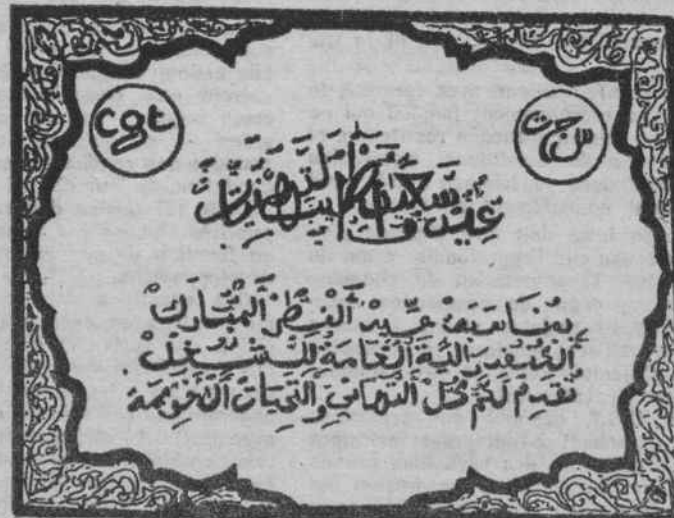 cgt
س ج ت
عيد سعيد
بمناسبة عيد الفطر المبارك
الكنفدرالية العامة للشغل
تقدم لكم كل التهاني والتحيات الأخوية